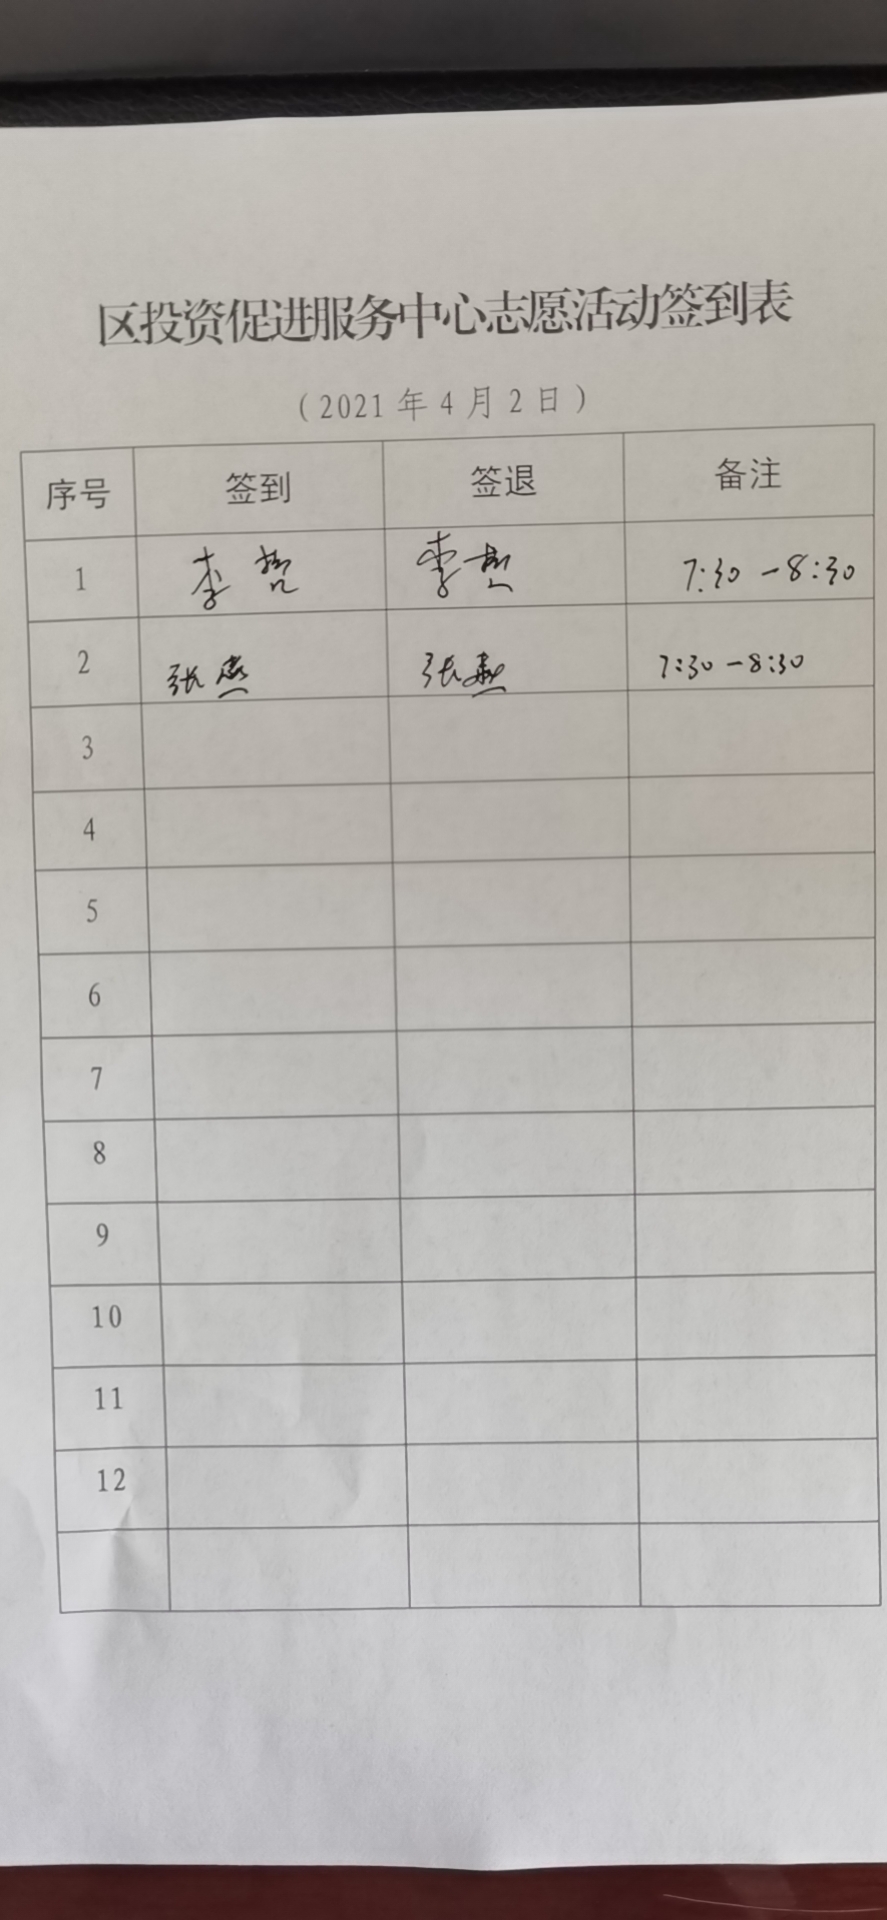 区投资促进服务中心志愿活动签到表
（2021年4月2日）
序号 签到 签退 备注
1 李哲 李哲 7:30-8:30
2 张燕 张燕 7:30-8:30
3
4
5
6
7
8
9
10
11
12